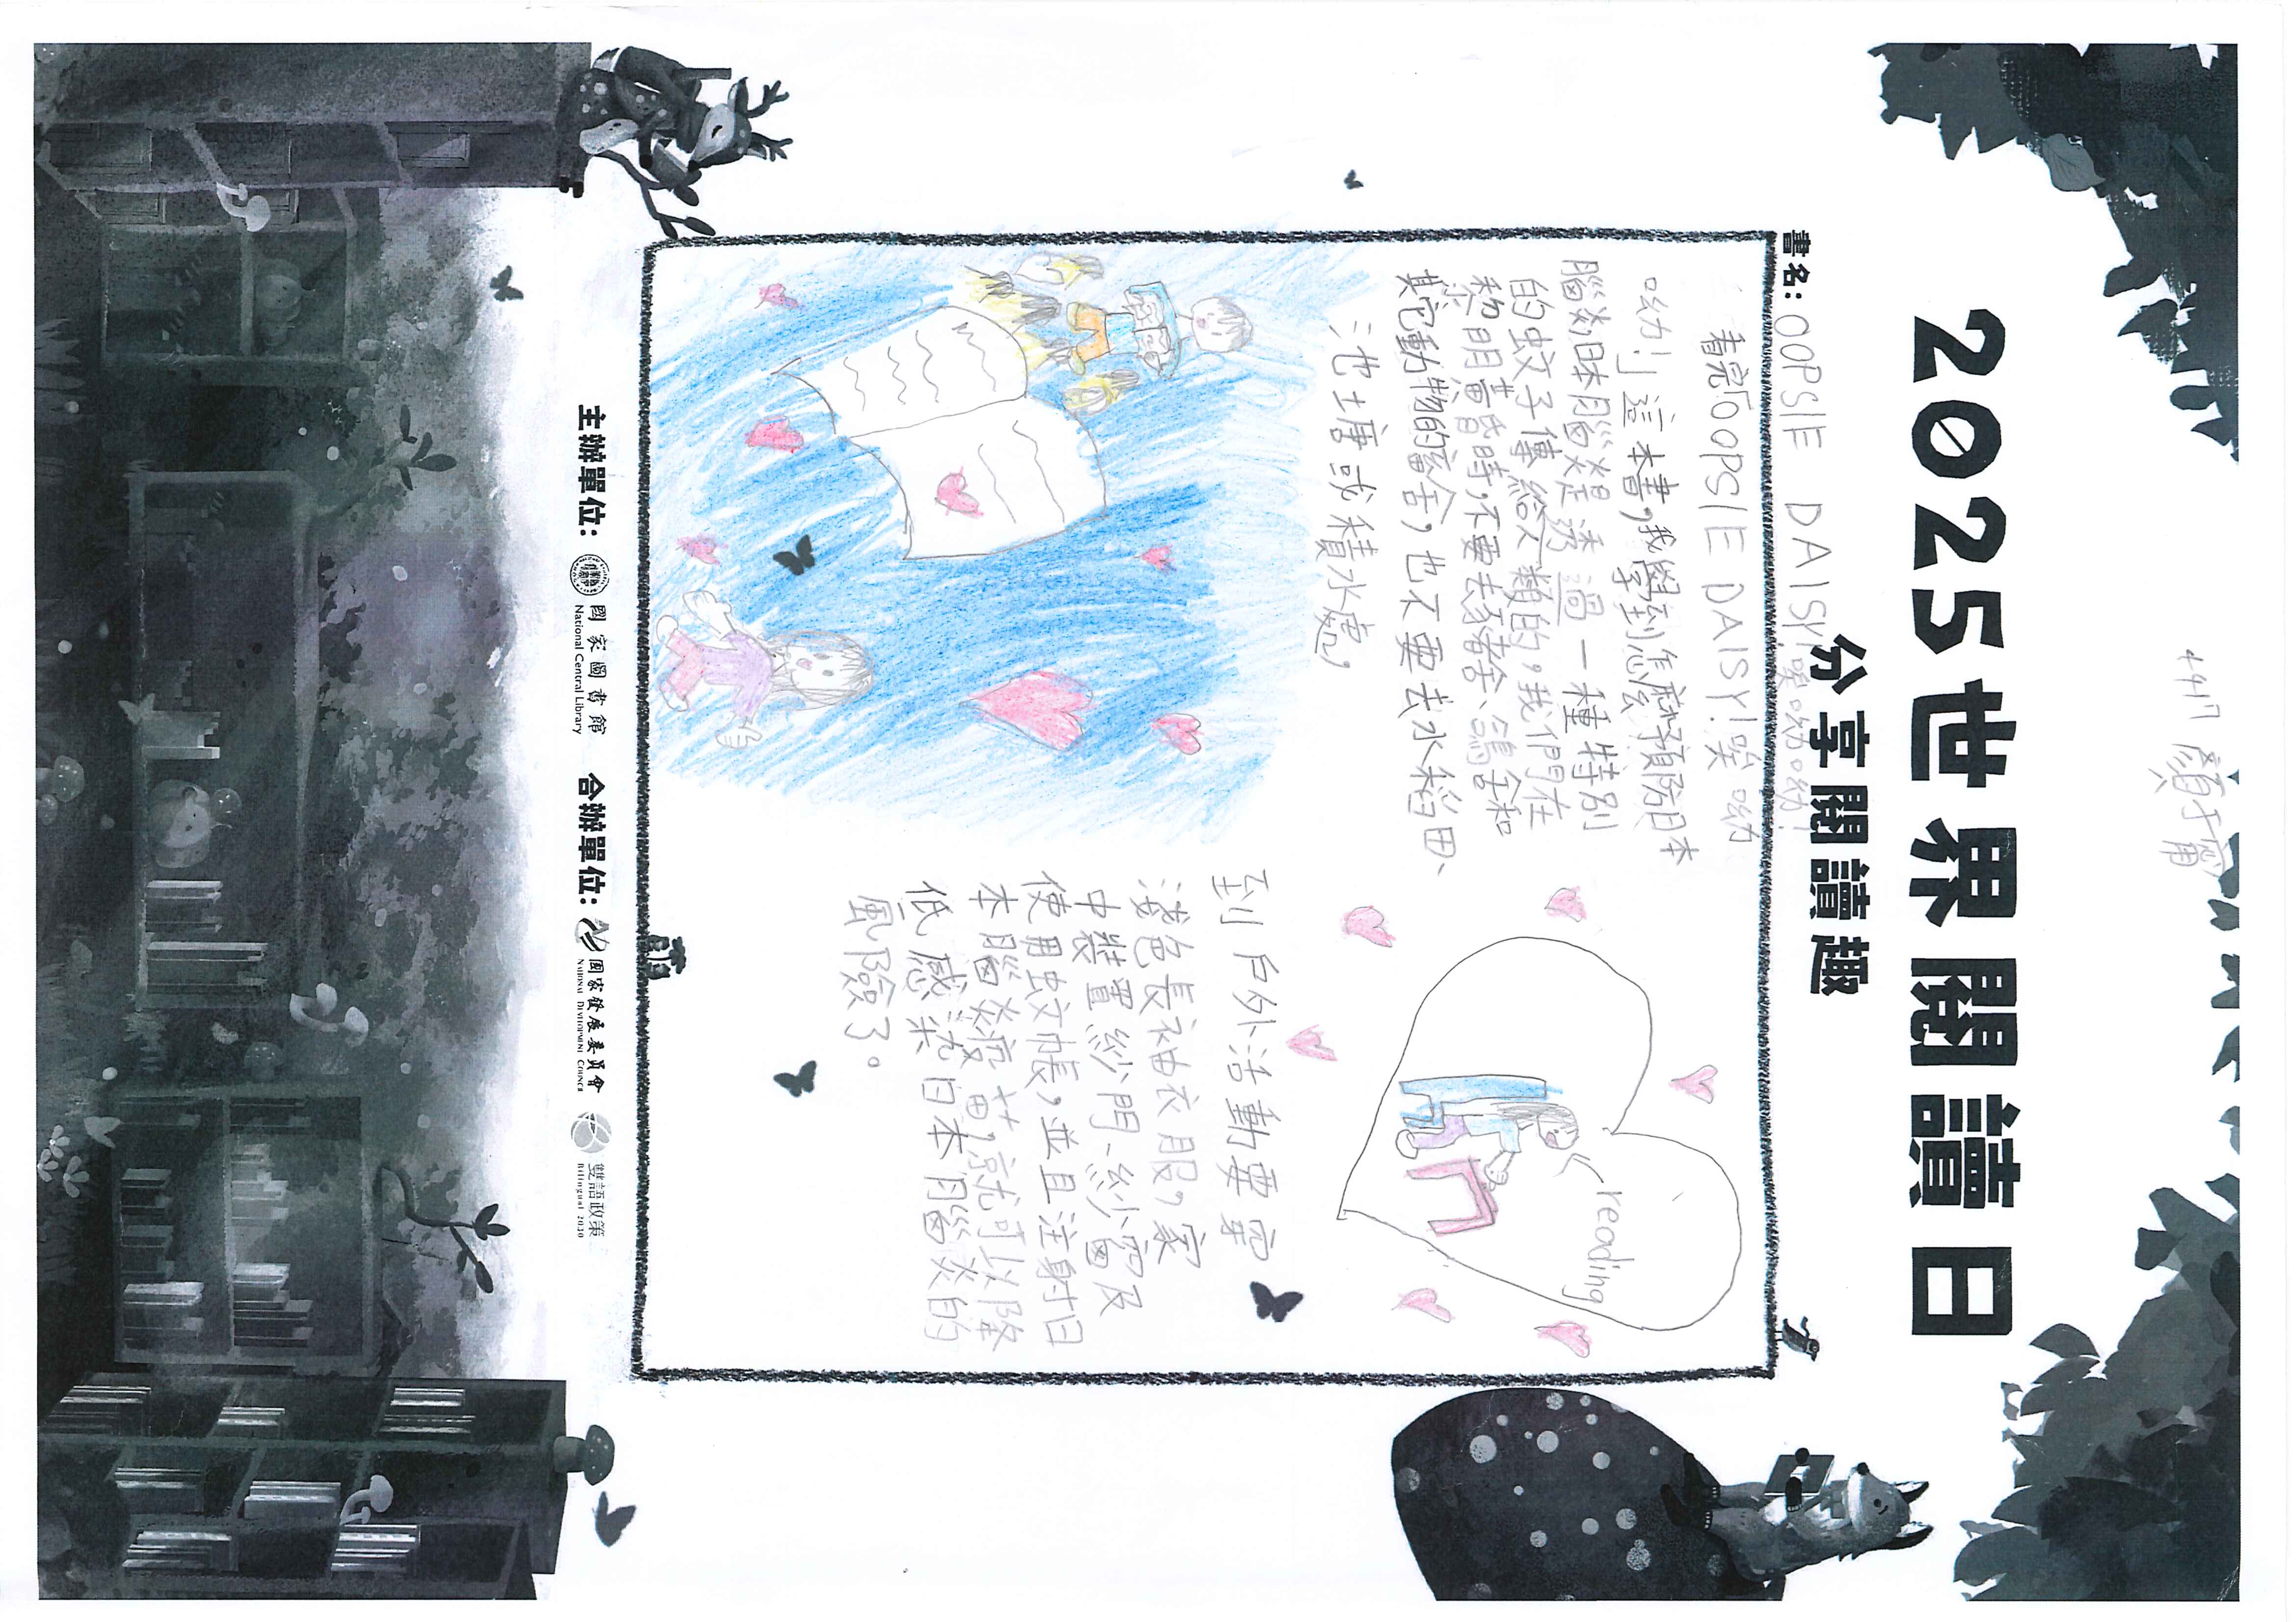 4417 顏
2025世界閱讀日
分享閱讀趣
書名：OOPSIE DAISY!唉呦呦!
看完「OOPSIE DAISY!唉呦
呦!」這本書，我學到怎麼預防日本
腦炎，日本腦炎是透過一種特別
的蚊子傳給人類的，我們在
黎明黃昏時，不要去豬舍、鴿舍和
其它動物的宿舍，也不要去水稻田、
池塘或積水處，
reading
到戶外活動要穿
淺色長袖衣服，家
中裝置紗門、紗窗及
使用蚊帳，並且注射日
本腦炎疫苗，就可以降
低感染日本腦炎的
風險了。
主辦單位：國家圖書館 National Central Library 合辦單位：國家發展委員會 National Development Council 雙語政策 Bilingual 2030